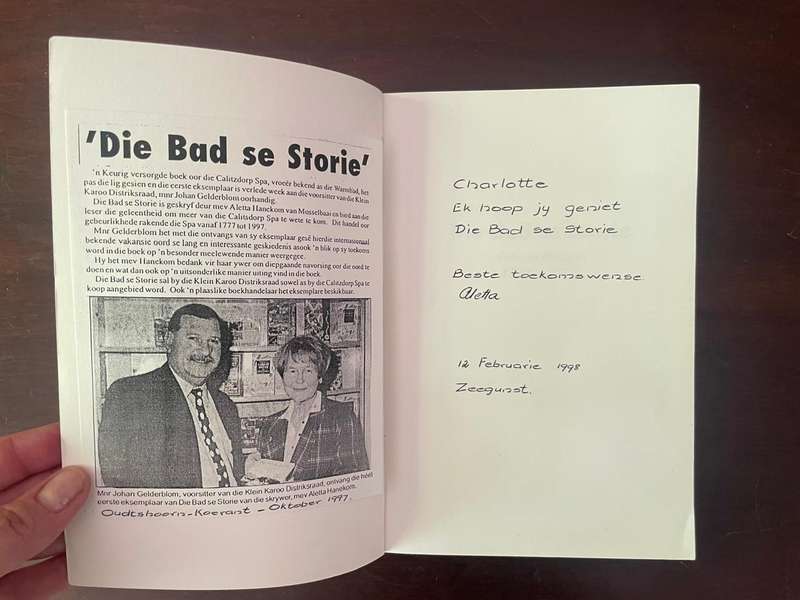 'Die Bad se Storie'
'n Keurig versorgde boek oor die Calitzdorp Spa, vroeër bekend as die Warmbad, het
pas die lig gesien en die eerste eksemplaar is verlede week aan die voorsitter van die Klein
Karoo Distriksraad, mnr Johan Gelderblom oorhandig.
Die Bad se Storie is geskryf deur mev Aletta Hanekom van Mosselbaai en bied aan die
leser die geleentheid om meer van die Calitsdorp Spa te wete te kom. Dit handel oor
gebeurlikhede rakende die Spa vanaf 1777 tot 1997.
Mnr Gelderblom het met die ontvangs van sy eksemplaar gesê hierdie internasionaal
bekende vakansie oord se lang en interessante geskiedenis asook 'n blik op sy toekoms
word in die boek op 'n besonder meelewende manier weergegee.
Hy het mev Hanekom bedank vir haar ywer om diepgaande navorsing oor die oord te
doen en wat dan ook op 'n uitsonderlike manier uiting vind in die boek.
Die Bad se Storie sal by die Klein Karoo Distriksraad sowel as by die Calitzdorp Spa te
koop aangebied word. Ook 'n plaaslike boekhandelaar het eksemplare beskikbaar.
Mnr Johan Gelderblom, voorsitter van die Klein Karoo Distriksraad, ontvang die heel
eerste eksemplaar van Die Bad se Storie van die skrywer, mev Aletta Hanekom.
Oudtshoorn-Koerant - Oktober 1997.
Charlotte
Ek hoop jy geniet
Die Bad se Storie
Beste toekomswense
Aletta
12 Februarie 1998
Zeegunst.